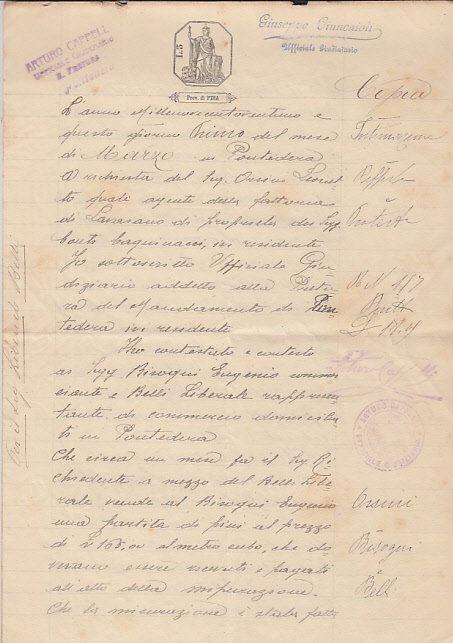 Giuseppe Ciancaioli
Ufficiale Giudiziario
ARTURO CAPPELL
L.5
Prov. di PISA
Copia
L'anno Millenovecentoventuno e
questo giorno Primo del mese
di Marzo in Pontedera
A richiesta del Sig. Orsini Lionet
to quale agente della fattoria
di Lavaiano di proprietà dei Sigg
Conti in residente
Io sottoscritto Ufficiale Giu-
diziario addetto alla Pretu
ra del Mandamento di Pon
tedera ivi residente
Ho contestato e contesto
ai Sigg Bisoqui Eugenio commer
ciante e Belli Liberale rappresen
tante di commercio domicilia
ti in Pontedera
Che circa un mese fa il Sig Ri-
chiedente a mezzo del Belli Libe
rale vende al Bisoqui Eugenio
una partita di pini al prezzo
di al metro cubo, che do-
vevano essere recisi e pagati
all'atto della misurazione.
Che la misurazione è stata fatta
Intimazione
Protesta
Orsini
Bisoqui
Belli
Per il Sig. Liberale Belli